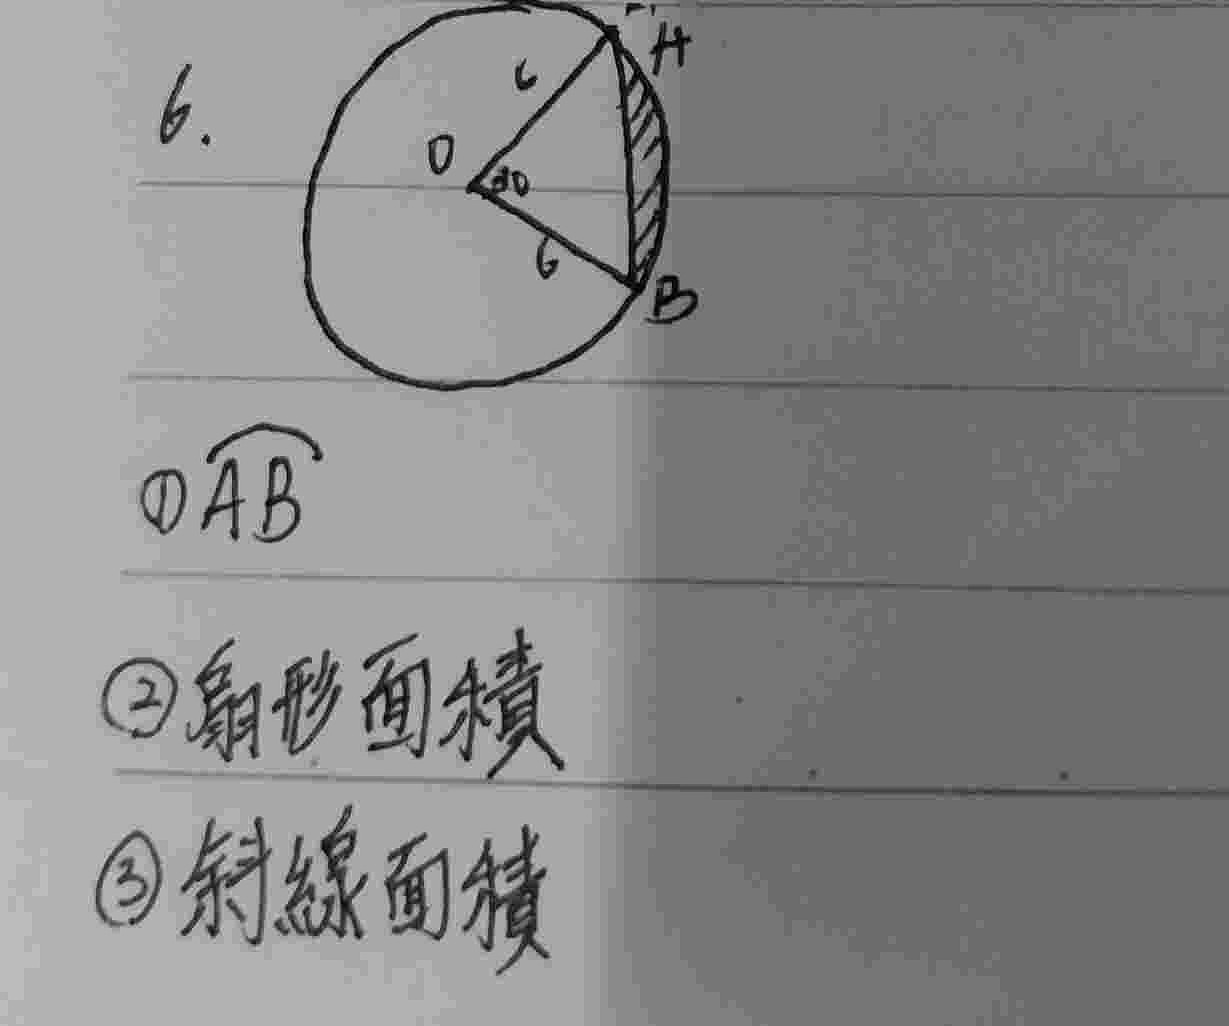 6.
A
6
O
30
6
B
①AB
②扇形面積
③斜線面積